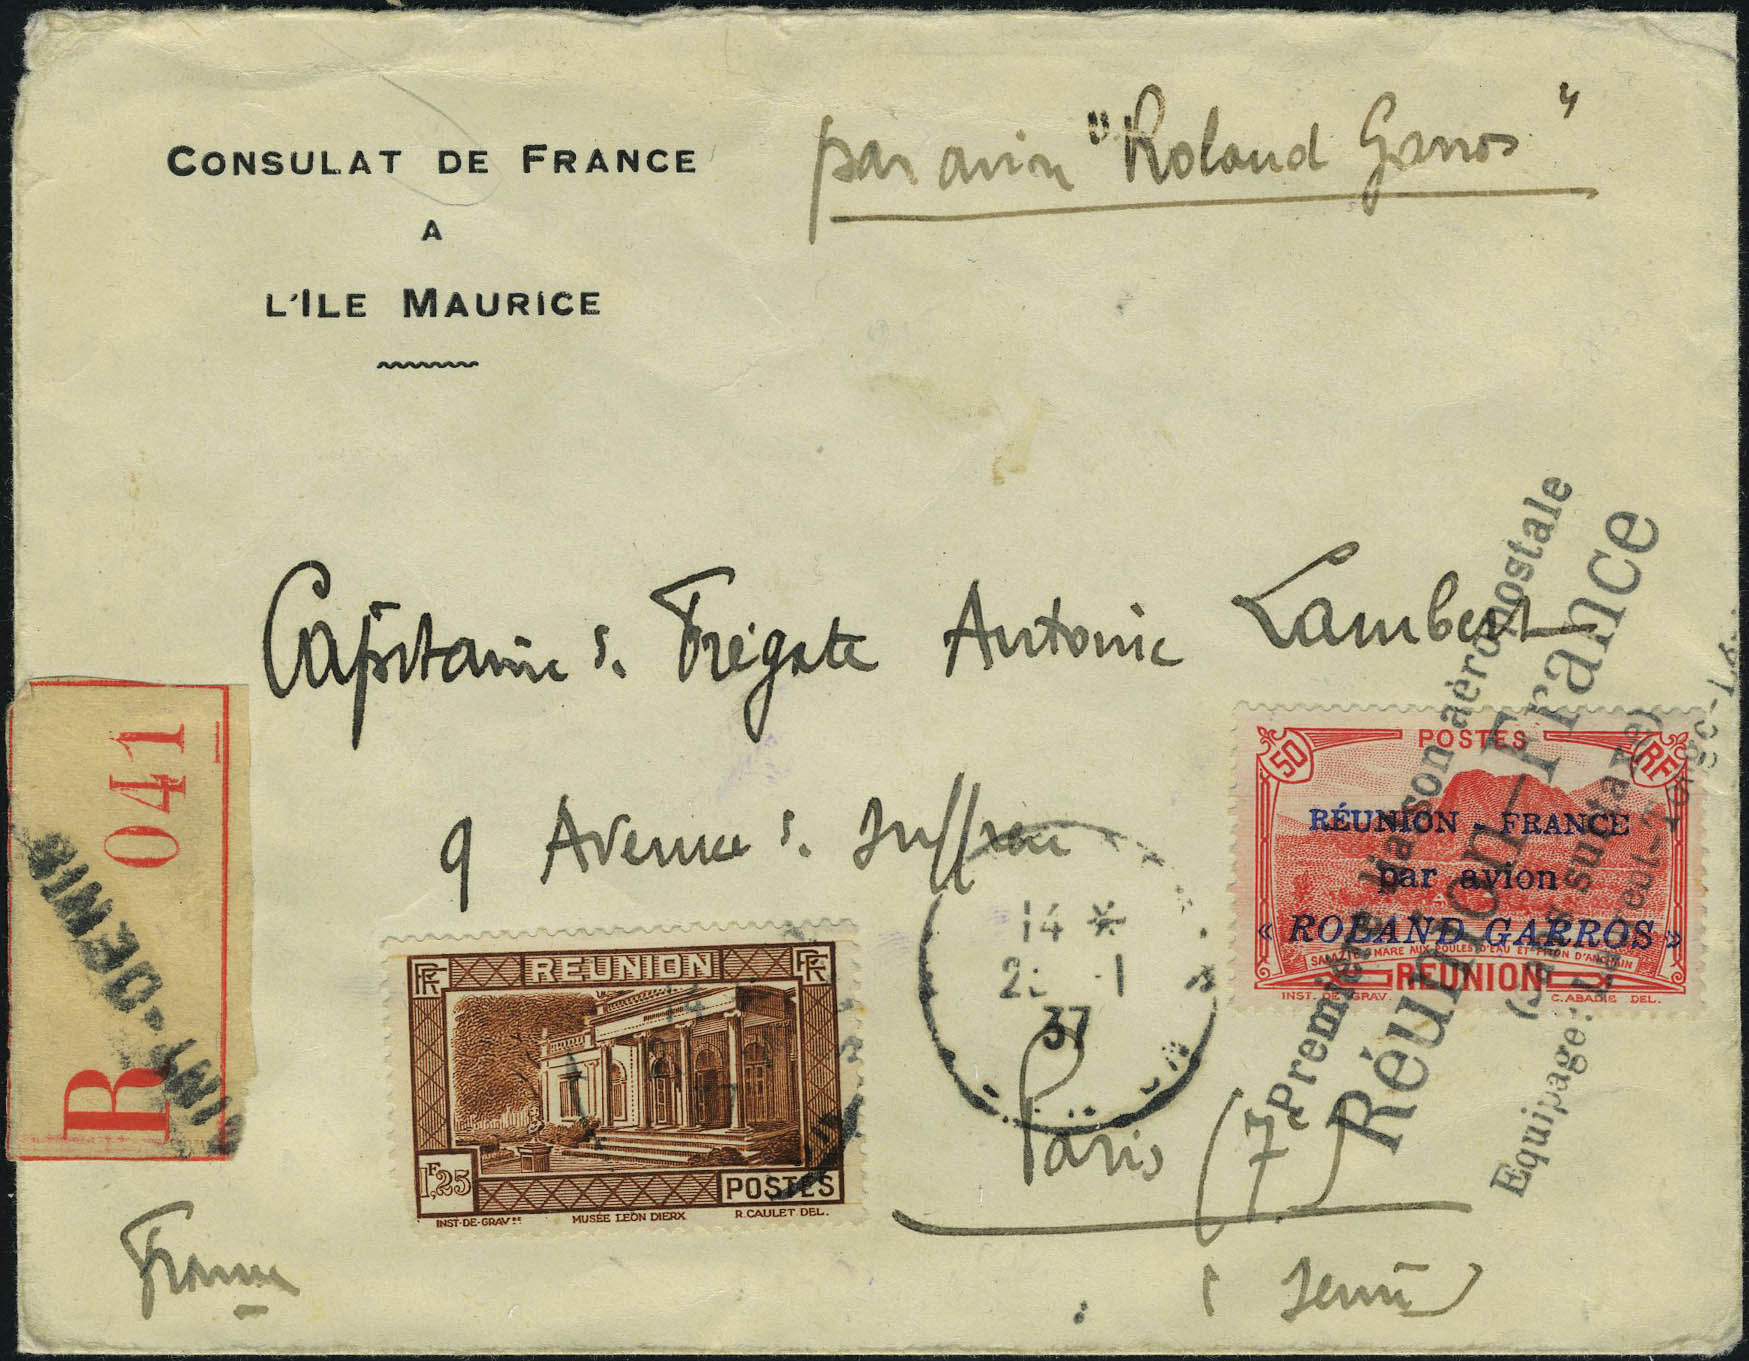 CONSULAT DE FRANCE
A
L'ILE MAURICE
par avion "Roland Garros"
Capitaine de Frégate Antoine Lambert
9 Avenue de Suffren
Paris (7e)
Seine
France
R 041
ST DENIS
14 *
-1
37
REUNION
RF
RF
1F,25
POSTES
INST-DE-GRAV.
MUSÉE LEON DIERX
R. CAULET DEL.
50
POSTES
RF
RÉUNION - FRANCE
par avion
« ROLAND GARROS »
SALAZIE MARE AUX POULES D'EAU ET PITON D'ANCHAIN
REUNION
INST. DE GRAV.
C. ABADIE DEL.
Première liaison aéropostale
Réunion—France
Equipage: